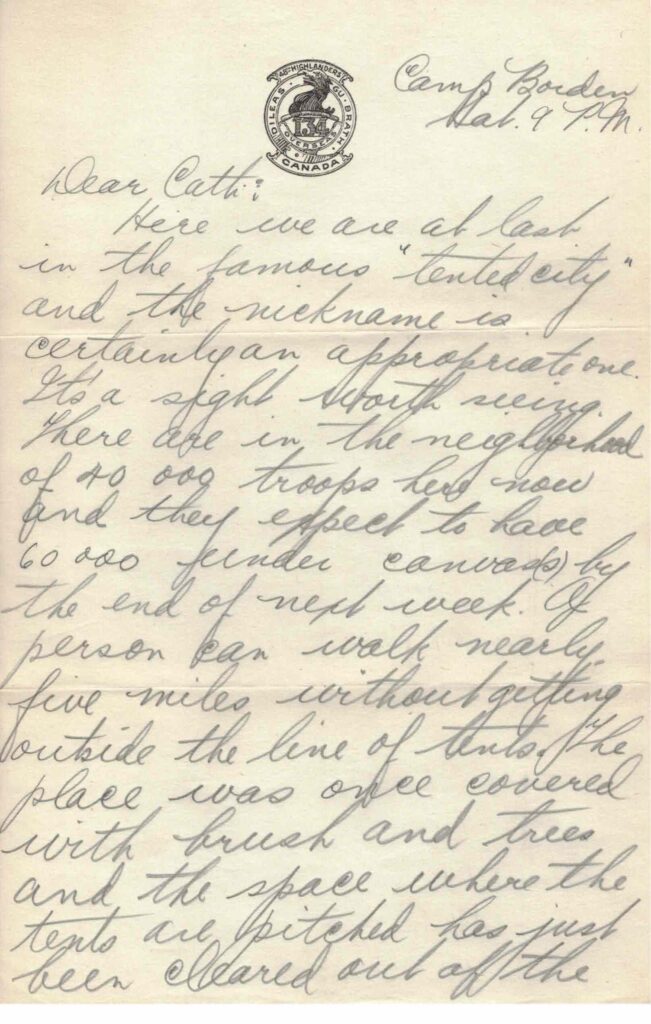 48TH HIGHLANDERS
DILEAS GU BRATH
134
OVERSEAS
CANADA
Camp Borden
Sat. 9 P.M.
Dear Cath:
Here we are at last
in the famous "tented city"
and the nickname is
certainly an appropriate one.
It's a sight worth seeing.
There are in the neighborhood
of 40 000 troops here now
and they expect to have
60 000 under canvas(s) by
the end of next week. A
person can walk nearly
five miles without getting
outside the line of tents. The
place was once covered
with brush and trees
and the space where the
tents are pitched has just
been cleared out of the